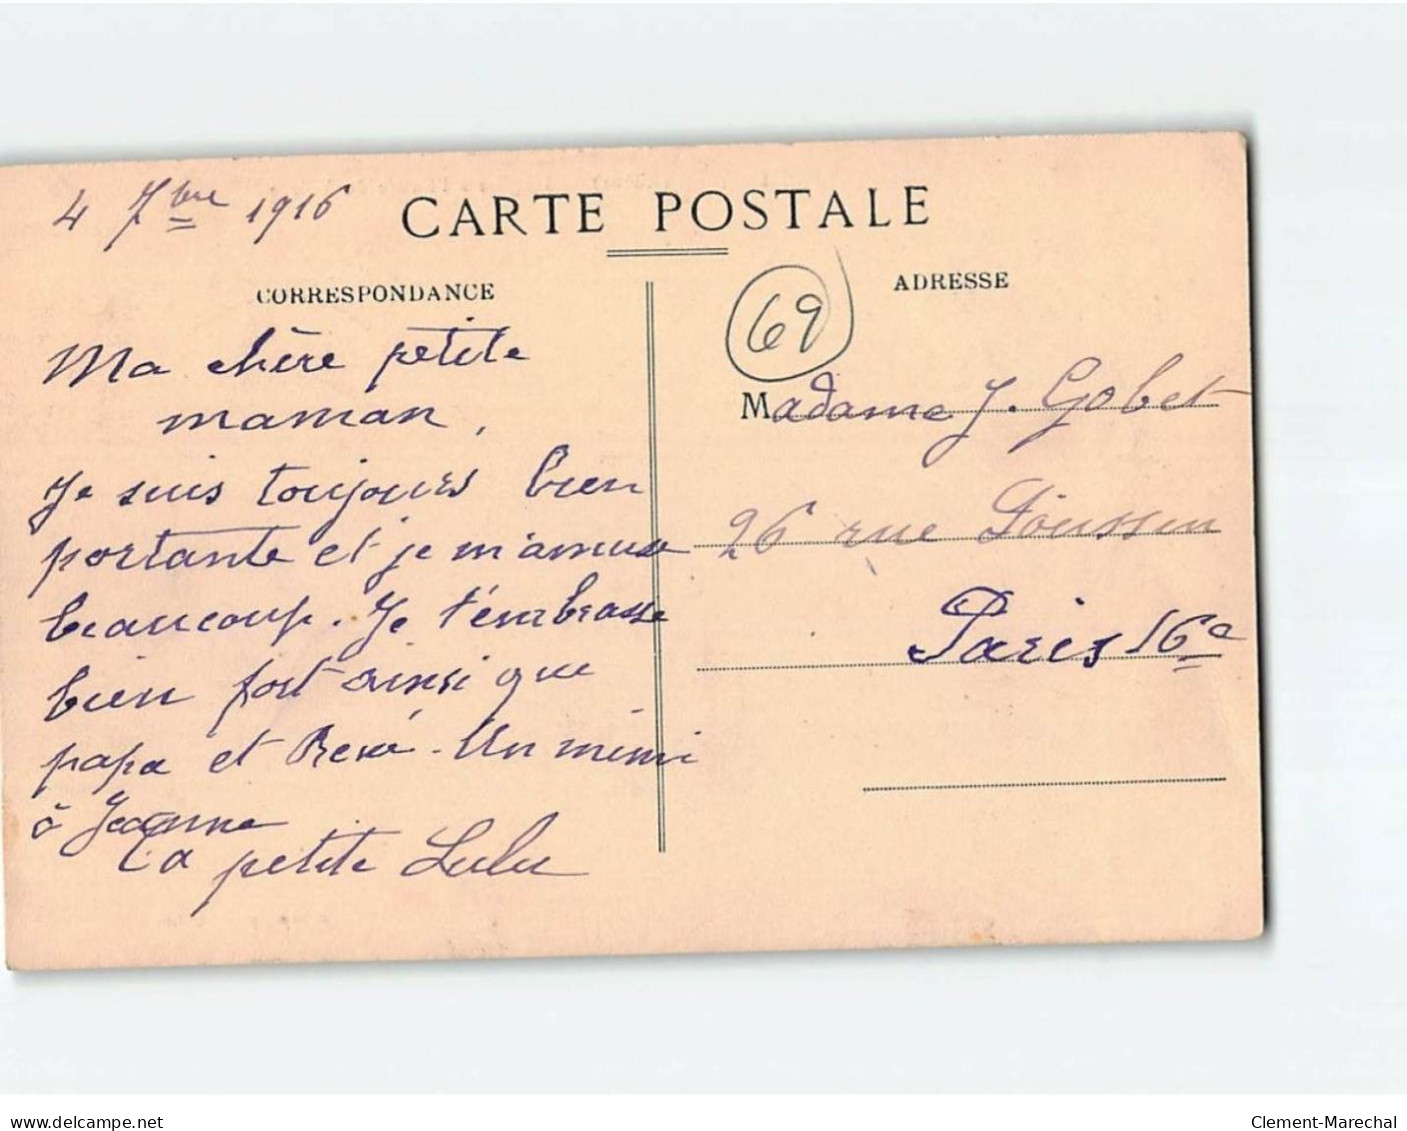 4 7bre 1916
CARTE POSTALE
CORRESPONDANCE
ADRESSE
69
Ma chère petite
maman,
Je suis toujours bien
portante et je m'amuse
beaucoup. Je t'embrasse
bien fort ainsi que
papa et René. Un mimi
à Jeanne
Ta petite Lulu
Madame J. Gobet
26 rue Poussin
Paris 16e
delcampe.net
Clement-Marechal